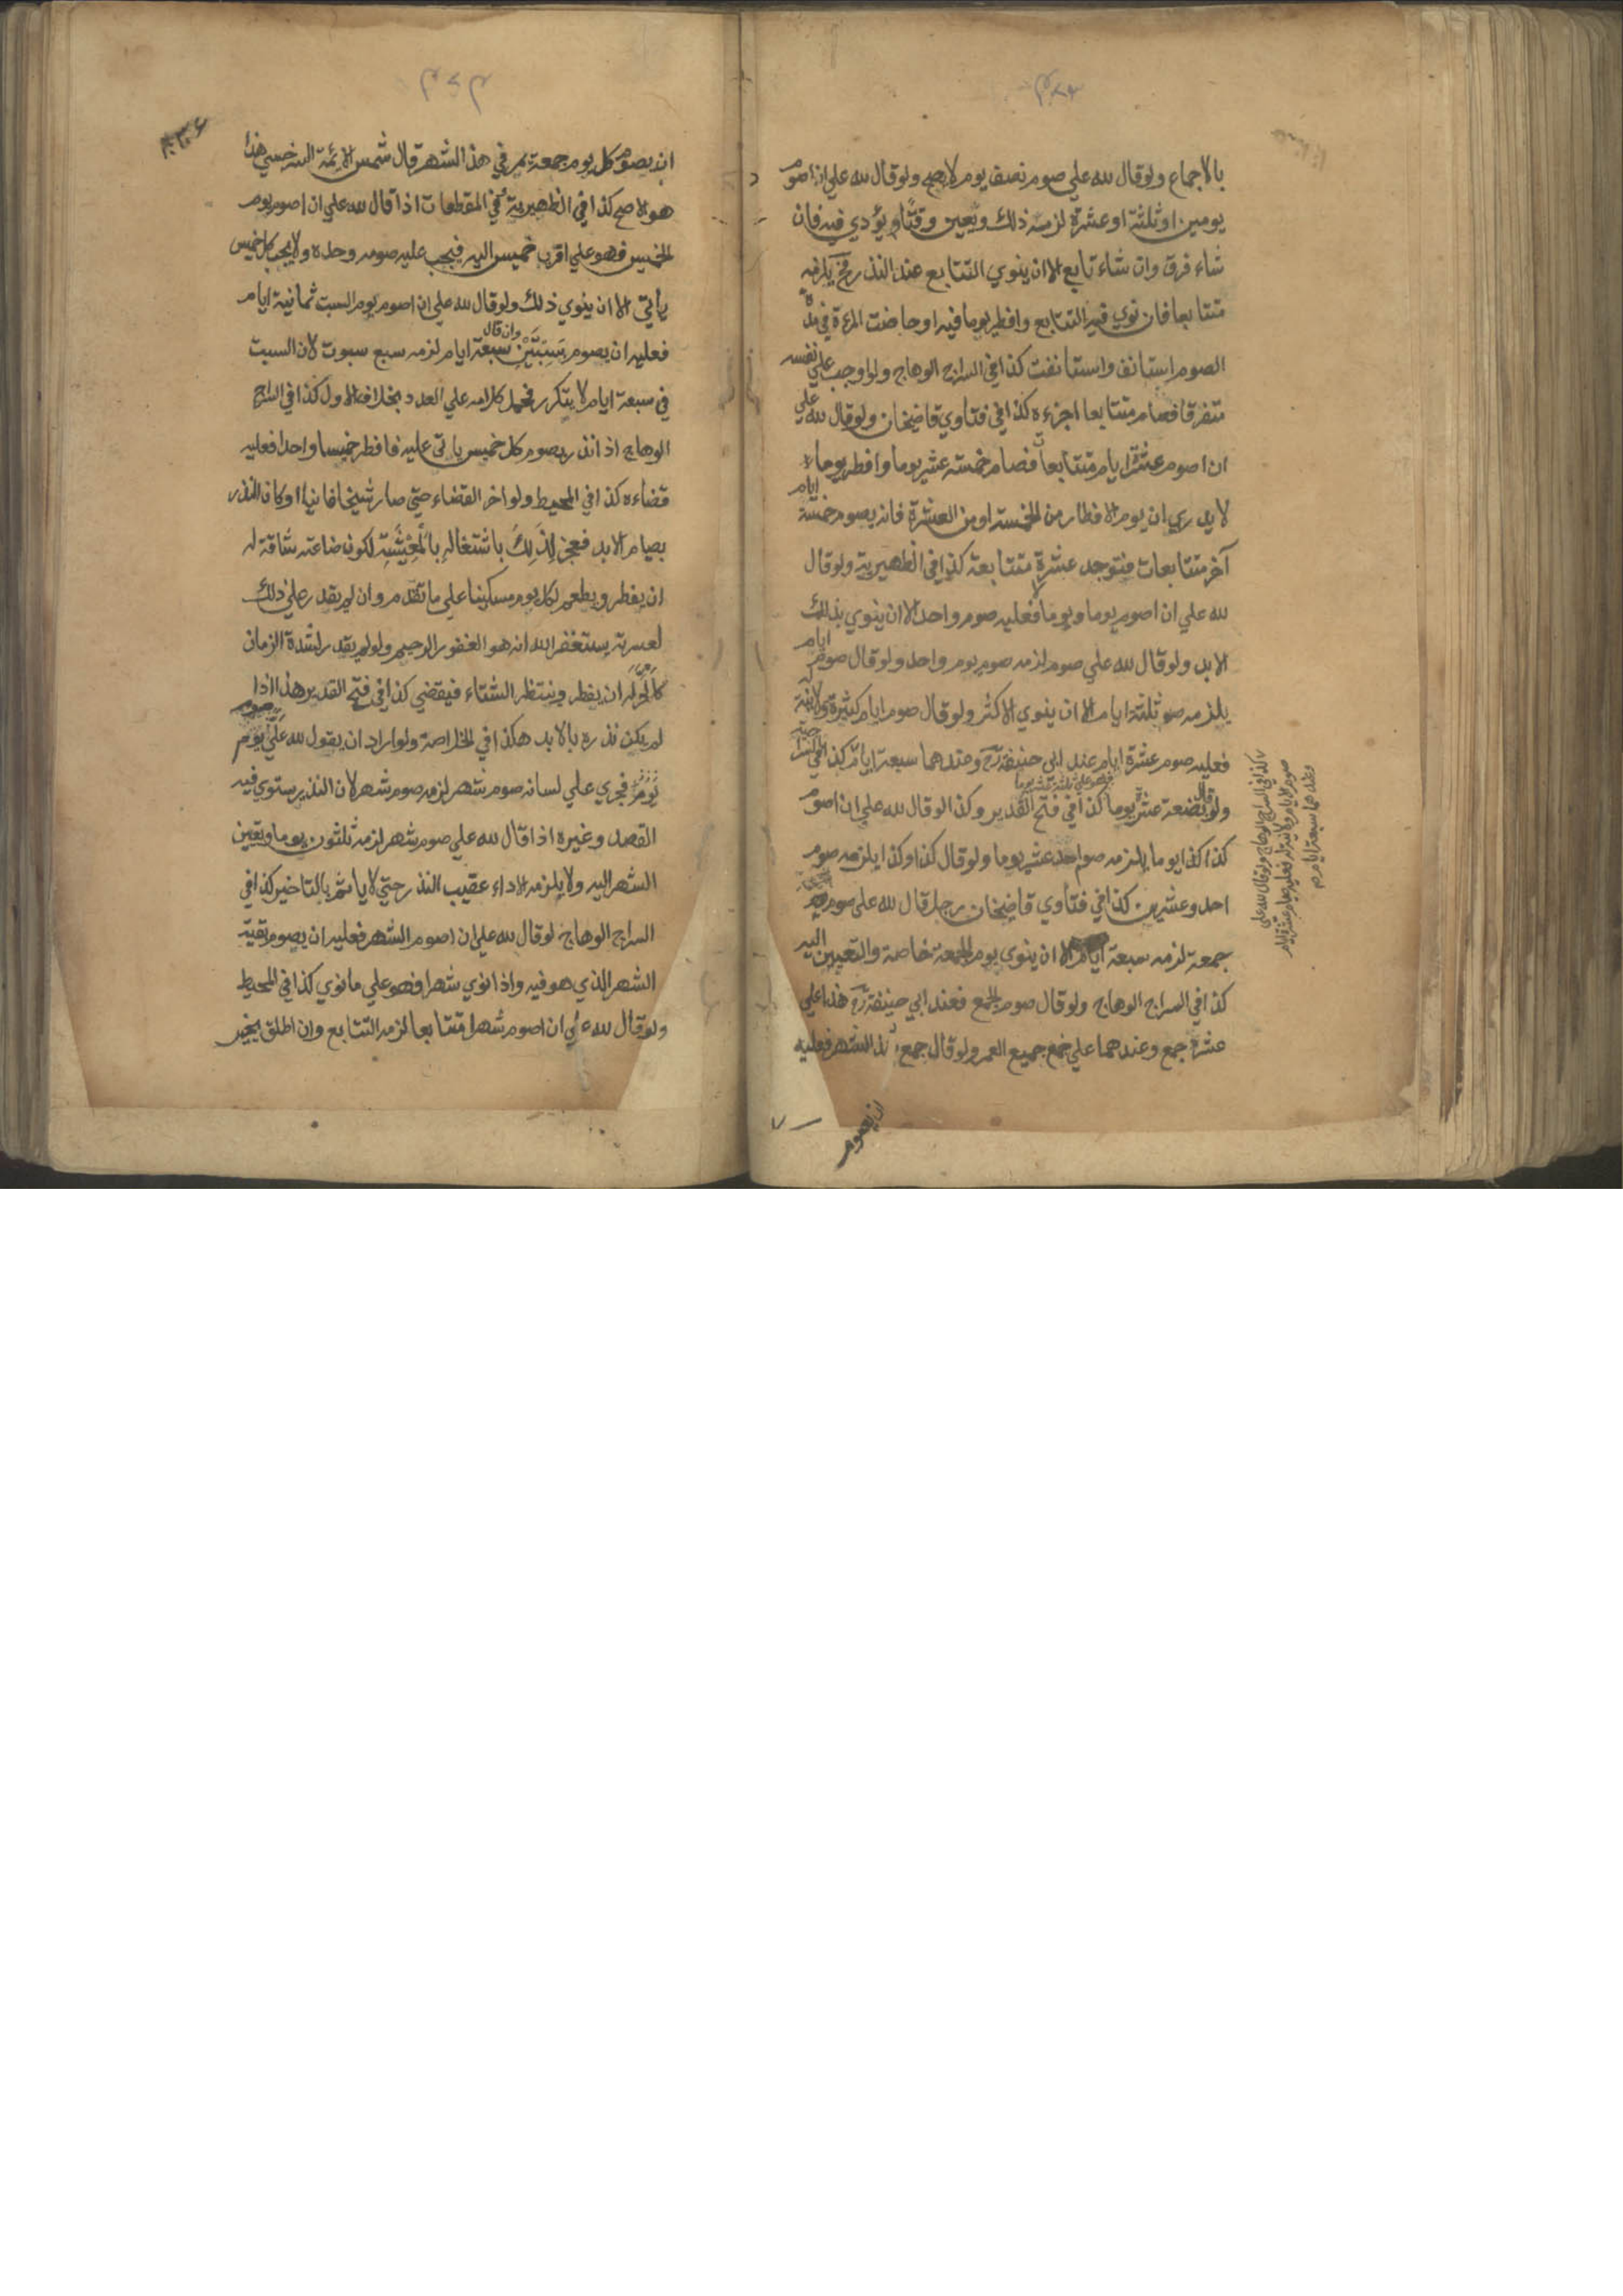 بالاجماع ولو قال لله علي صوم نصف يوم لا يصح ولو قال لله علي ان اصوم
يومين او ثلثة او عشرة لزمه ذلك ويعين وقتا ويؤدي فيه فان
شاء فرق وان شاء تابع الا ان ينوي التتابع عند النذر فح يلزمه
متتابعا فان نوي فيه التتابع وافطر يوما فيه او حاضت المرءة في مدة
الصوم استانف واستانفت كذا في السراج الوهاج ولو اوجب علي نفسه
متفرقا فصام متتابعا اجزءه كذا في فتاوي قاضيخان ولو قال لله علي
ان اصوم عشرة ايام متتابعات فصام خمسة عشر يوما وافطر يوما
لا يدري ان يوم الافطار من الخمسة او من العشرة فانه يصوم خمسة ايام
آخر متتابعات فتوجد عشرة متتابعة كذا في الظهيرية ولو قال
لله علي ان اصوم يوما ويوما فعليه صوم واحد الا ان ينوي بذلك
الابد ولو قال لله علي صوم لزمه صوم يوم واحد ولو قال صوم ايام
يلزمه صوم ثلثة ايام الا ان ينوي الاكثر ولو قال صوم ايام كثيرة ولا نية له
فعليه صوم عشرة ايام عند ابي حنيفة رح وعندهما سبعة ايام كذا في
ولو قال بضعة عشر يوما فهو علي ثلثة عشر يوما كذا في فتح القدير وكذا لو قال لله علي ان اصوم
كذا كذا يوما يلزمه صوم احد عشر يوما ولو قال كذا وكذا يلزمه صوم
احد وعشرين كذا في فتاوي قاضيخان رجل قال لله علي صوم
جمعة لزمه سبعة ايام الا ان ينوي يوم الجمعة خاصة والتعيين اليه
كذا في السراج الوهاج ولو قال صوم الجمع فعند ابي حنيفة رح هذا علي
عشرة جمع وعندهما علي جمع جميع العمر ولو قال جمع هذا الشهر فعليه
ان يصوم
كذا في السراج الوهاج ولو قال لله علي
صوم الايام ولا نية له فعليه صيام عشرة ايام
وعندهما سبعة ايام
ان يصوم كل يوم جمعة يمر في هذا الشهر قال شمس الائمة السرخسي هذا
هو الاصح كذا في الظهيرية في المقطعات اذا قال لله علي ان اصوم يوم
الخميس فهو علي اقرب خميس اليه فيجب عليه صومه وحده ولا يجب كل خميس
يأتي الا ان ينوي ذلك ولو قال لله علي ان اصوم يوم السبت ثمانية ايام
فعليه ان يصوم سبتين وان قال سبعة ايام لزمه سبع سبوت لان السبت
في سبعة ايام لا يتكرر فحمل كلامه علي العدد بخلاف الاول كذا في السراج
الوهاج اذا نذر بصوم كل خميس ياتي عليه فافطر خميسا واحدا فعليه
قضاءه كذا في المحيط ولو اخر القضاء حتي صار شيخا فانيا او كان النذر
بصيام الابد فعجز لذلك باشتغاله بالمعيشة لكون صناعته شاقة له
ان يفطر ويطعم لكل يوم مسكينا علي ما تقدم وان لم يقدر علي ذلك
لعسرته يستغفر الله انه هو الغفور الرحيم ولو لم يقدر لشدة الزمان
كالحر له ان يفطر وينتظر الشتاء فيقضي كذا في فتح القدير هذا اذا
لم يكن نذره بالابد هكذا في الخلاصة ولو اراد ان يقول لله علي صوم
يوم فجري علي لسانه صوم شهر لزمه صوم شهر لان النذر يستوي فيه
القصد وغيره اذا قال لله علي صوم شهر لزمه ثلثون يوما وتعيين
الشهر اليه ولا يلزمه الاداء عقيب النذر حتي لا ياثم بالتاخير كذا في
السراج الوهاج لو قال لله علي ان اصوم الشهر فعليه ان يصوم بقية
الشهر الذي هو فيه واذا نوي شهرا فهو علي ما نوي كذا في المحيط
ولو قال لله علي ان اصوم شهرا متتابعا لزمه التتابع وان اطلق يخير